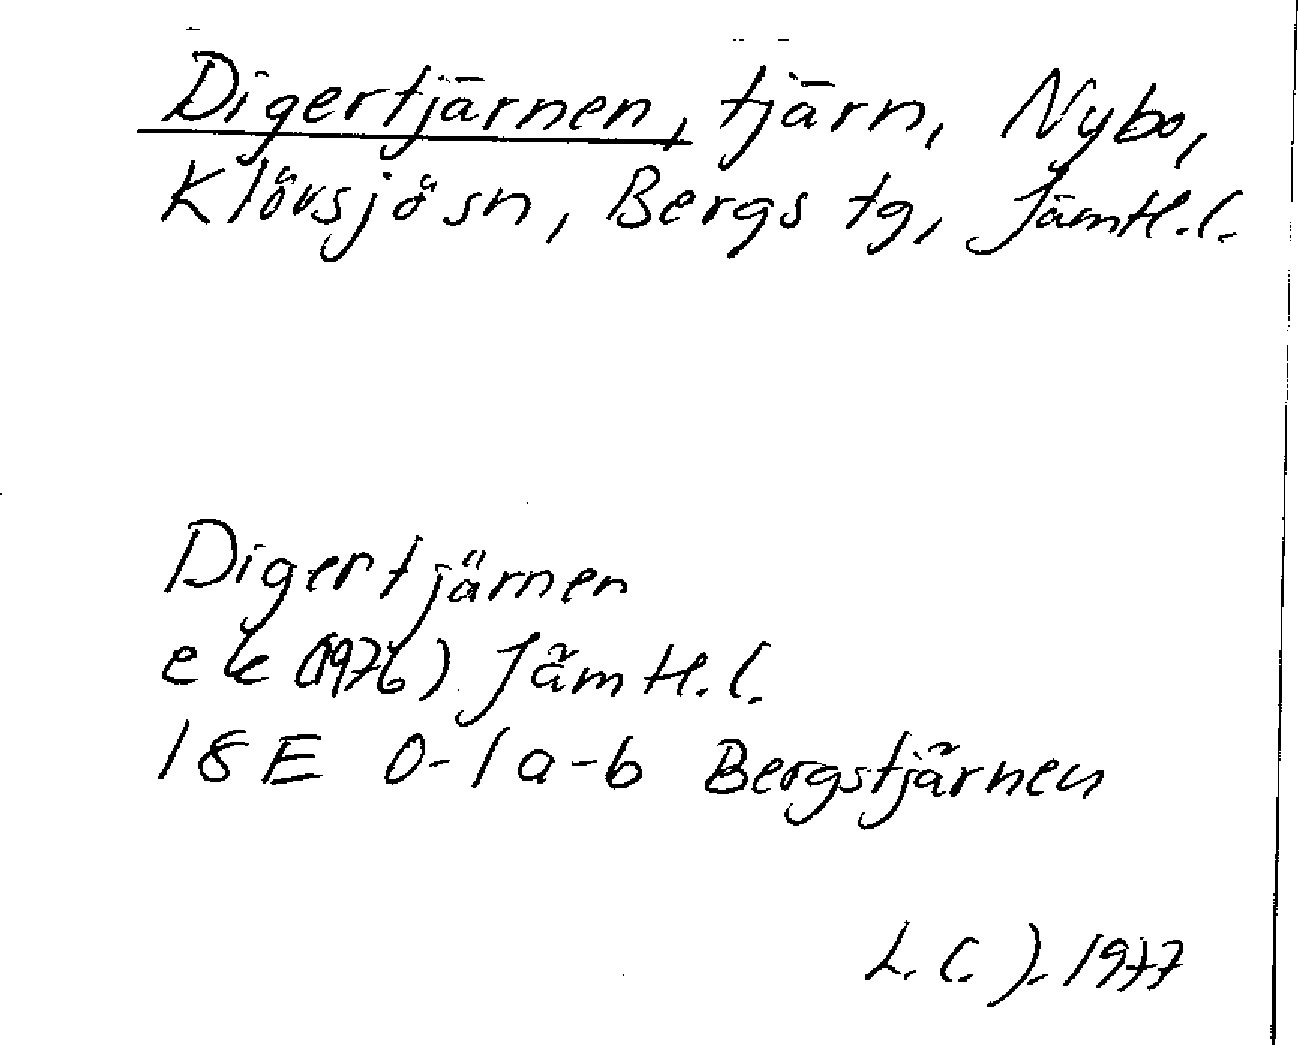 Digertjärnen, tjärn, Nybo,
Klövsjö sn, Bergs tg, Jämtl.l.
Digertjärnen
ek (1976) Jämtl.l.
18E 0-1a-b Bergstjärnen
L.C.J. 1977